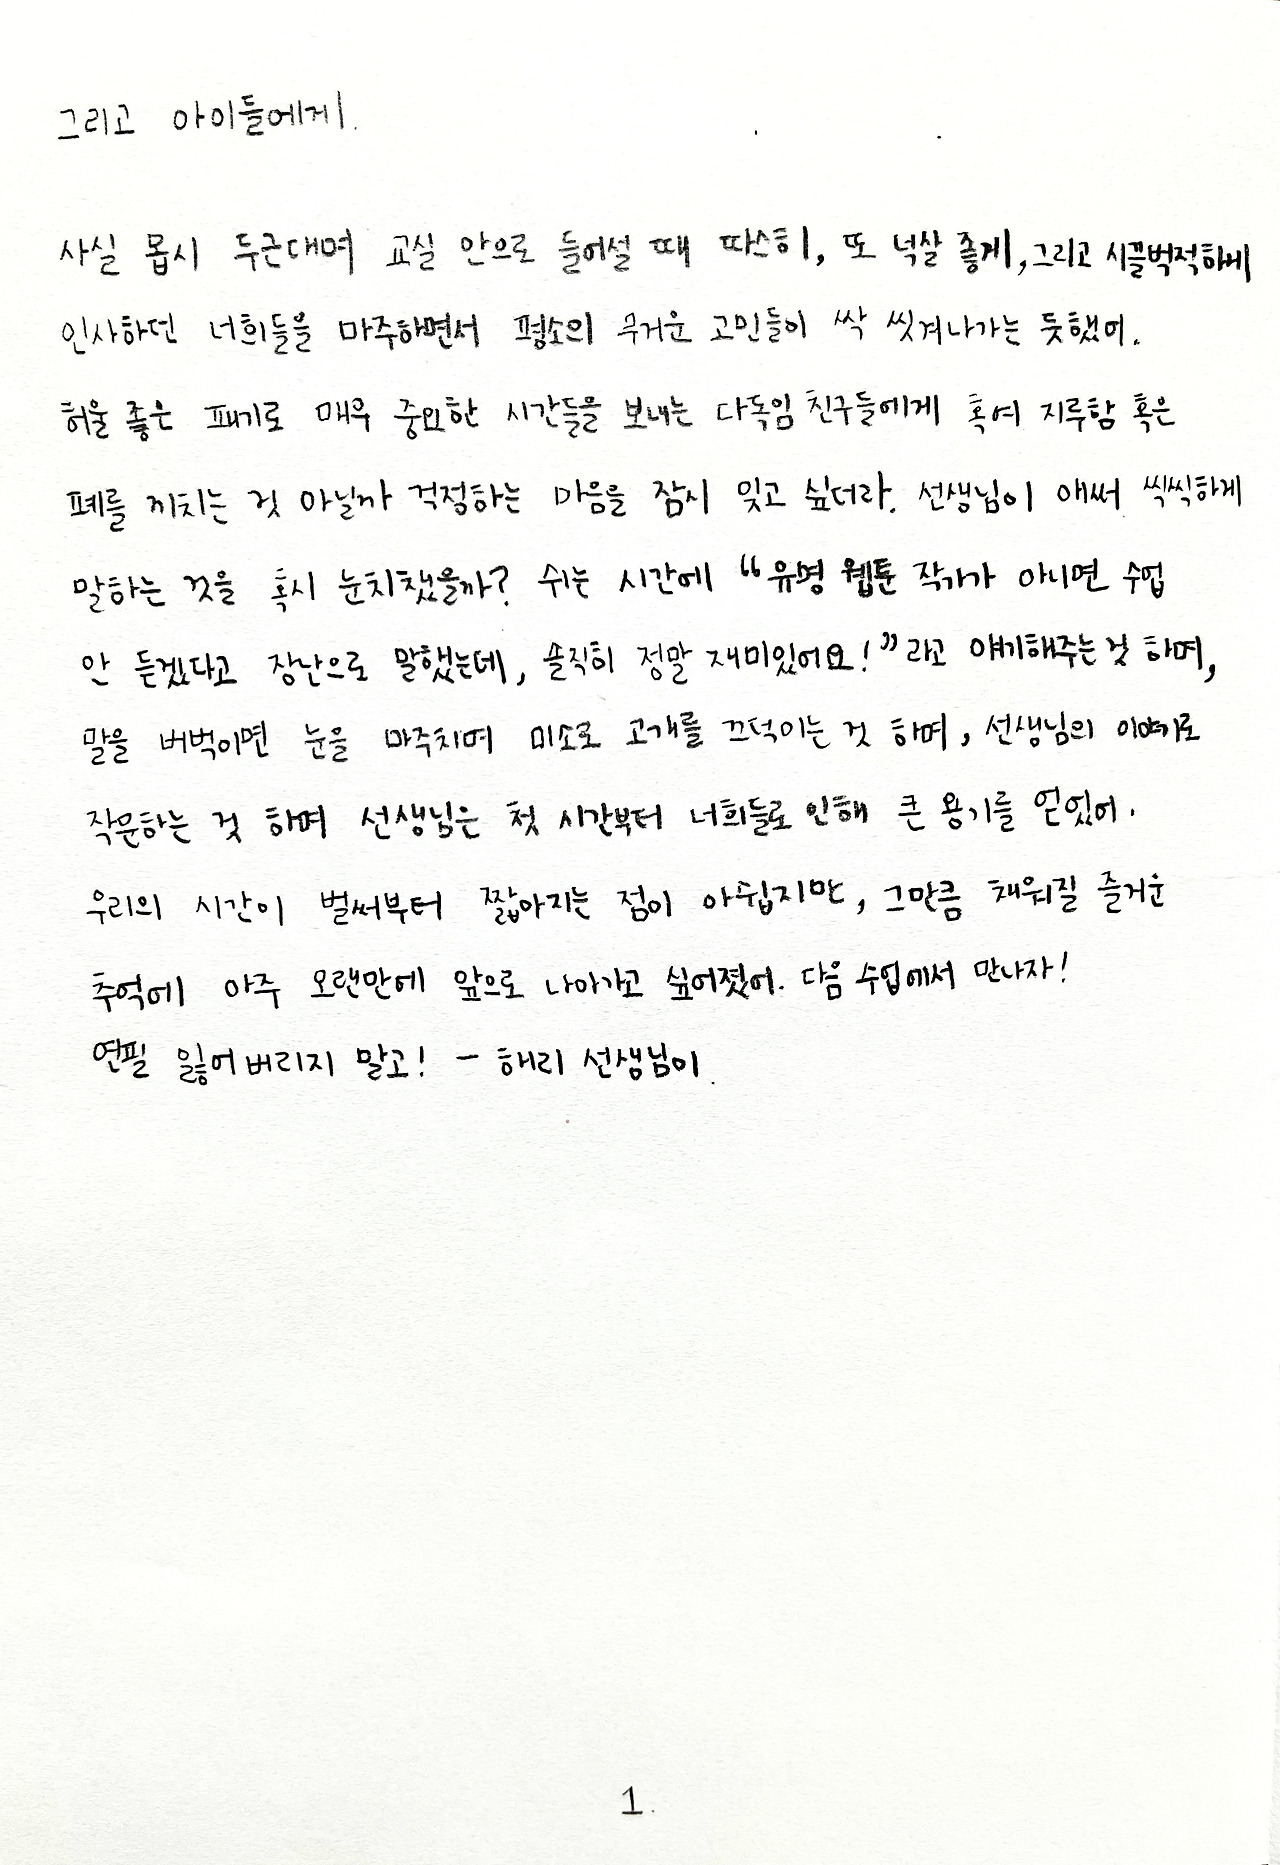 그리고 아이들에게.
사실 몹시 두근대며 교실 안으로 들어설 때 따스히, 또 넉살 좋게, 그리고 시끌벅적하게
인사하던 너희들을 마주하면서 평소의 무거운 고민들이 싹 씻겨나가는 듯했어.
허울 좋은 패기로 매우 중요한 시간들을 보내는 다독임 친구들에게 혹여 지루함 혹은
폐를 끼치는 것 아닐까 걱정하는 마음을 잠시 잊고 싶더라. 선생님이 애써 씩씩하게
말하는 것을 혹시 눈치챘을까? 쉬는 시간에 “유명 웹툰 작가가 아니면 수업
안 듣겠다고 장난으로 말했는데, 솔직히 정말 재미있어요!”라고 얘기해주는 것 하며,
말을 버벅이면 눈을 마주치며 미소로 고개를 끄덕이는 것 하며, 선생님의 이야기로
작문하는 것 하며 선생님은 첫 시간부터 너희들로 인해 큰 용기를 얻었어.
우리의 시간이 벌써부터 짧아지는 점이 아쉽지만, 그만큼 채워질 즐거운
추억에 아주 오랜만에 앞으로 나아가고 싶어졌어. 다음 수업에서 만나자!
연필 잃어버리지 말고! - 해리 선생님이.
1.